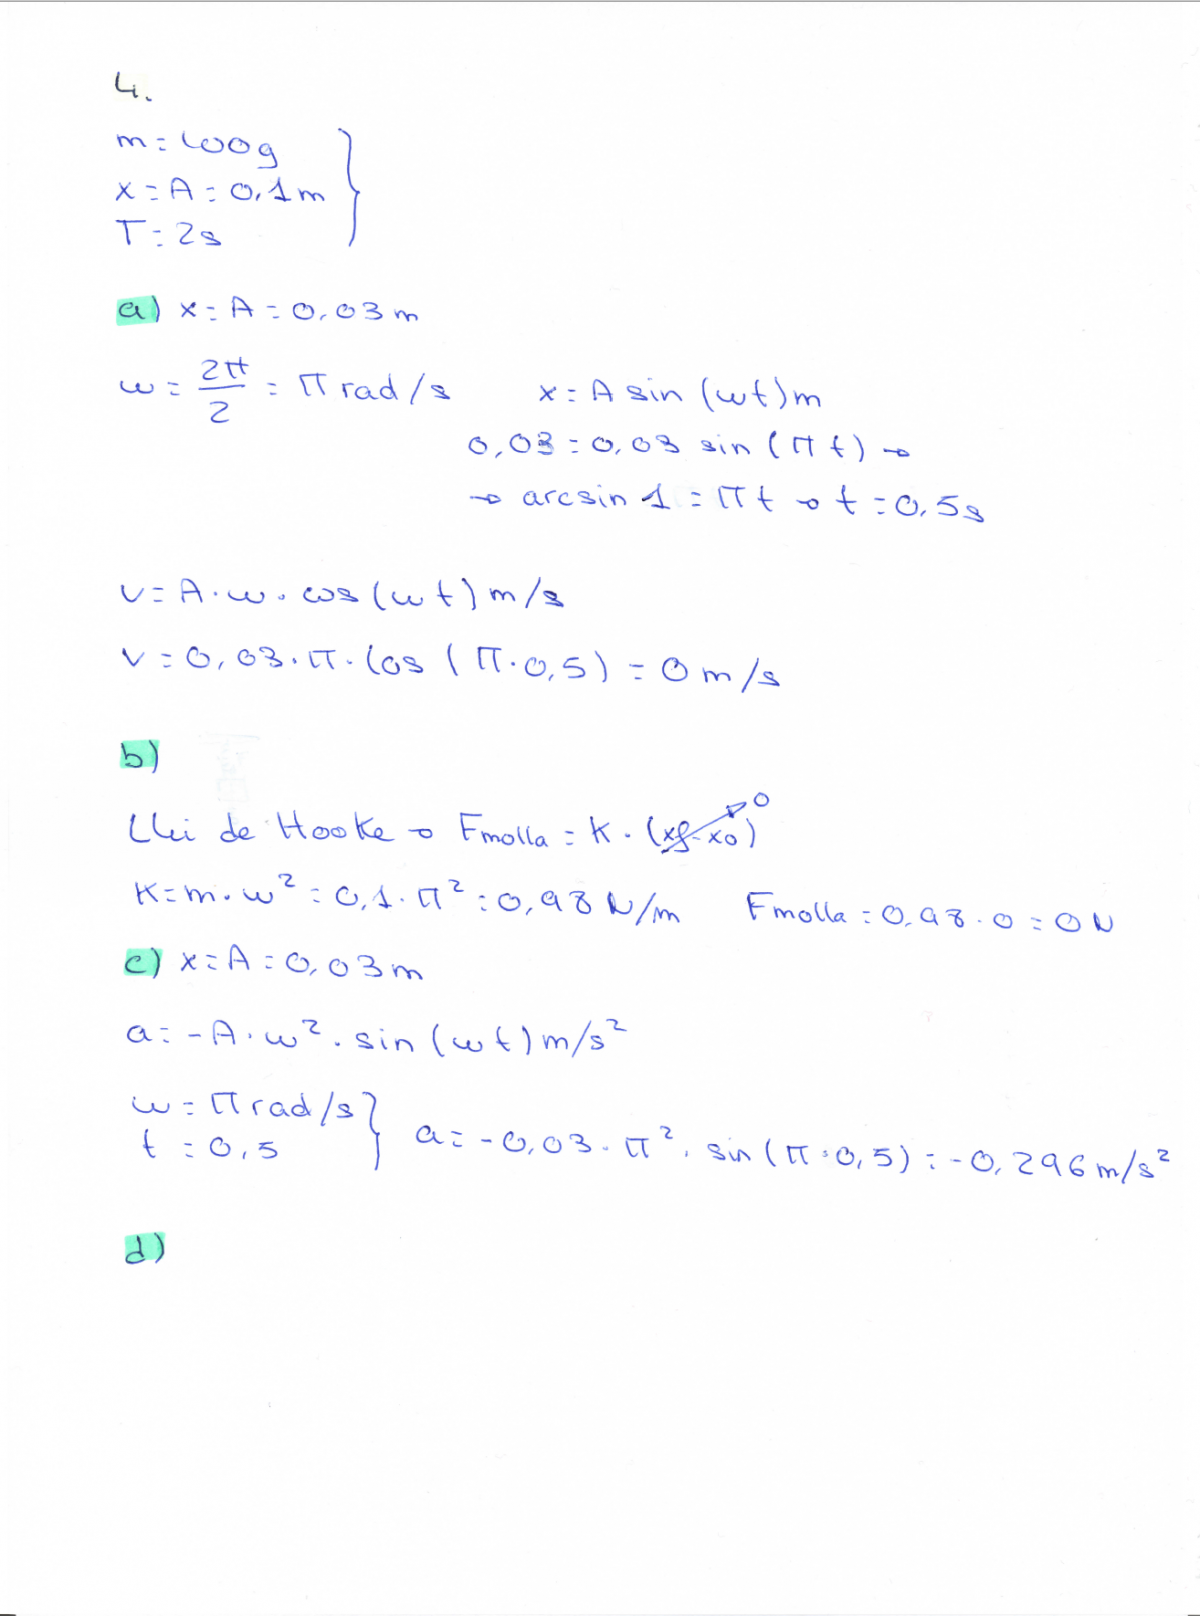 4.
m = 100g
x = A = 0,1 m
T = 2s
a) x = A = 0,03 m
w = 2π/2 = π rad/s x = A sin (wt) m
0,03 = 0,03 sin (π t) →
→ arcsin 1 = π t → t = 0,5s
v = A · w · cos (wt) m/s
v = 0,03 · π · cos (π · 0,5) = 0 m/s
b)
Llei de Hooke → Fmolla = K · (xf - x0) 0
K = m · w² = 0,1 · π² = 0,98 N/m Fmolla = 0,98 · 0 = 0 N
c) x = A = 0,03 m
a = -A · w² · sin (wt) m/s²
w = π rad/s
t = 0,5
a = -0,03 · π² · sin (π · 0,5) = -0,296 m/s²
d)